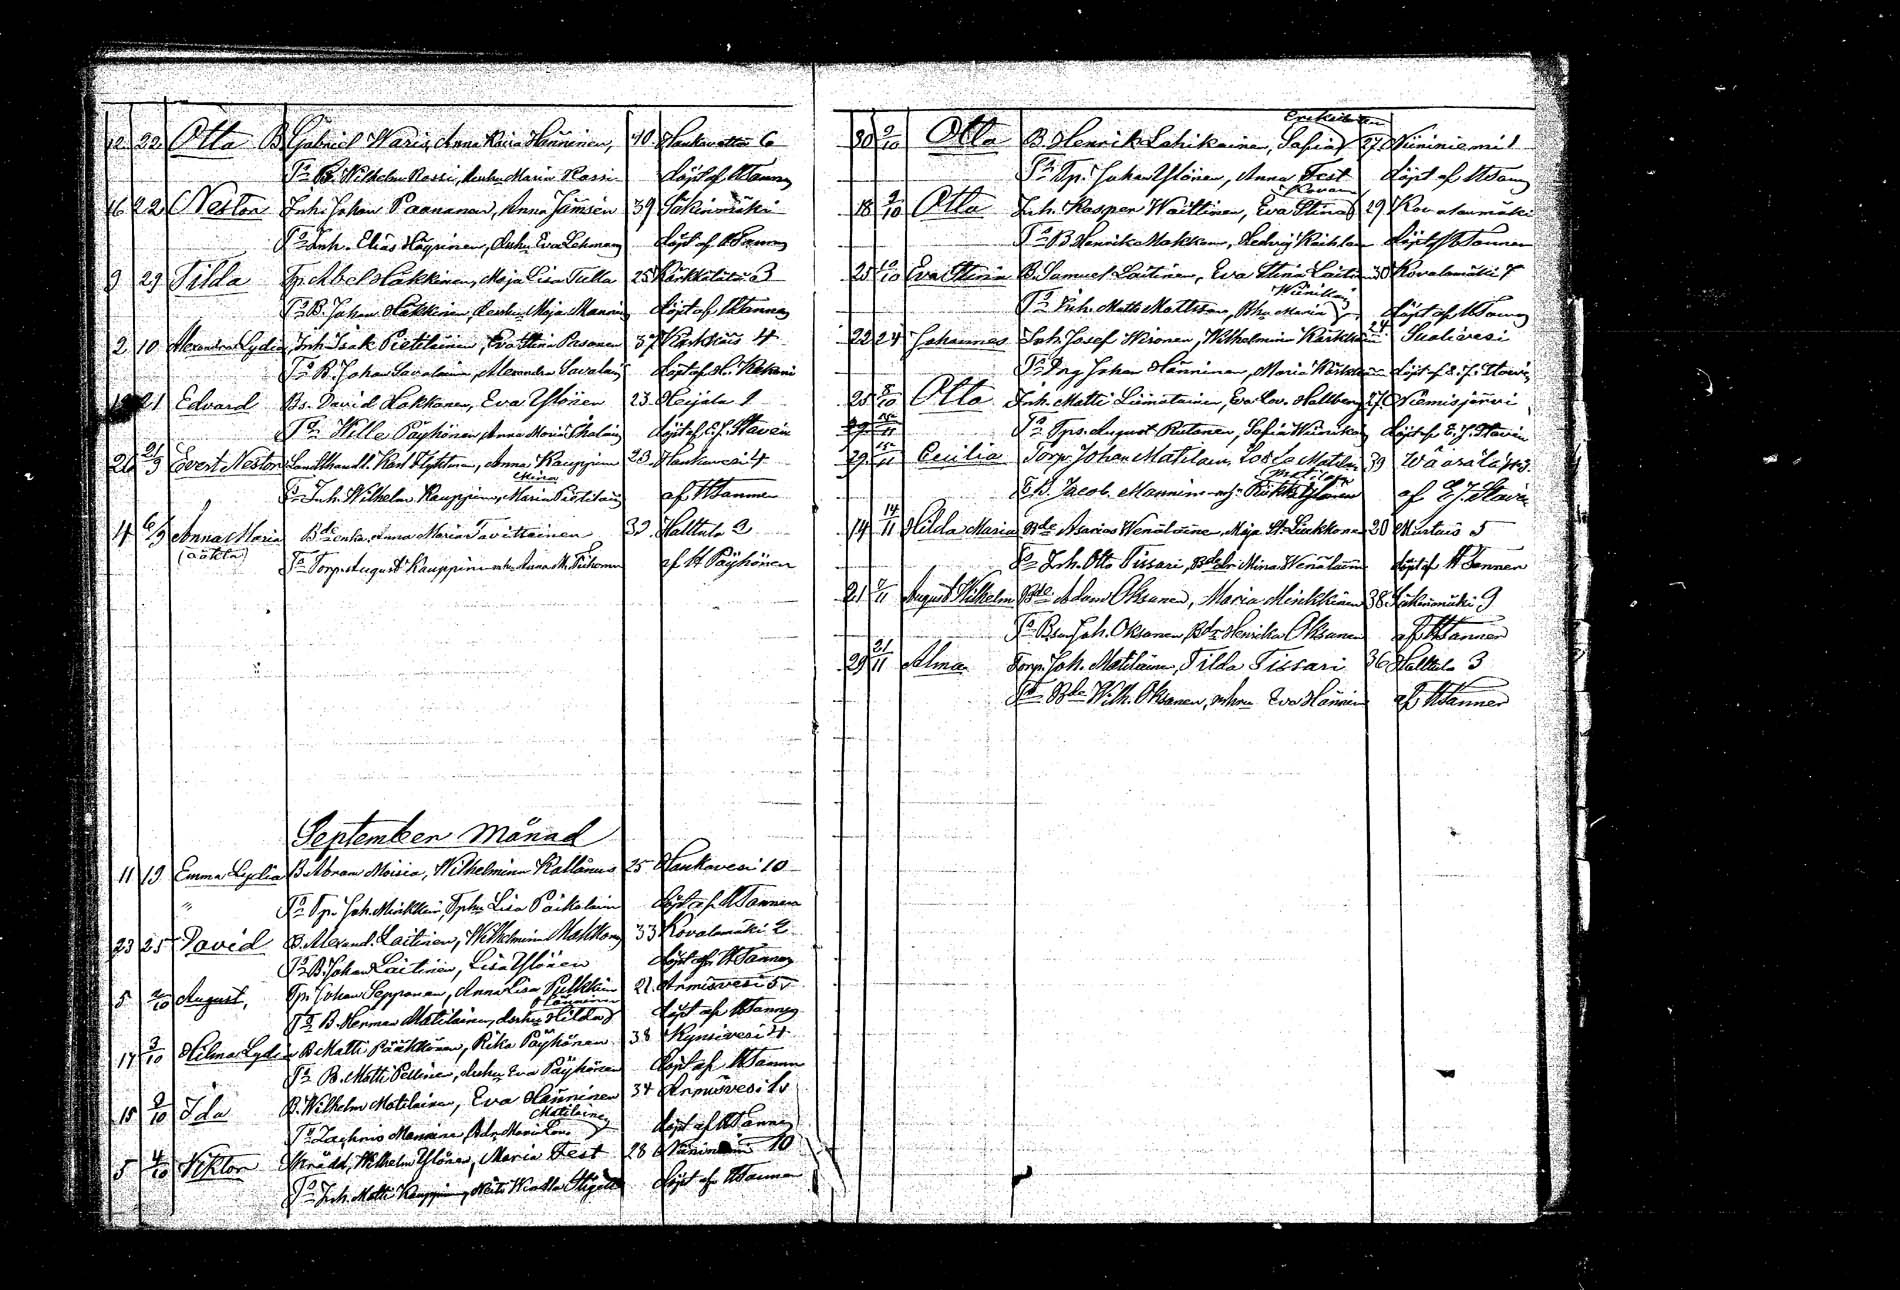 12 22 Otto B. Gabriel Waris, Anna Kaisa Hänninen, 40 Hankavesi 6
Ta B. Wilhelm Rossi, Maria Rossi döpt af HTanner
16 22 Nestor Inh. Johan Paananen, Anna Jämsén 39 Säkinmäki
Ta Inh. Elias Häyrinen, Eva Lehman döpt af HTanner
9 29 Tilda Tp. Abel Hakkinen, Maja Lisa Tulla 25 Kärkkälä 3
Ta B. Johan Hakkinen, Maja Manninen döpt af HTanner
2 10 Alexandra Lydia Inh. Isak Pietiläinen, Eva Stina Pasanen 37 Kärkkäis 4
Ta B. Johan Savolainen, Alexandra Savolain döpt af H.
21 Edvard Bs. David Hokkanen, Eva Ylönen 23 Heijala 1
Ta Wille Päyhönen, Anna Maria döpt af E. J. Stavén
26 21/9 Evert Nestor Landthandl. Karl Flyktman, Anna Kauppinen 23 Hankavesi 4
Mina
Ta Inh. Wilhelm Kauppinen, Maria Pietiläin af HTanner
4 6/9 Anna Maria Bde enka Anna Maria Tavittainen 32 Halttula 2
(oäkta) Ta Torp. August Kauppinen Anna M. af H Päyhönen
September Månad
11 19 Emma Lydia B Abram Moisia, Wilhelmina Kallanus 25 Hankavesi 10
" Ta Tp. Joh. Minkkin, Tphu Lisa döpt af HTanner
23 25 David B. Alexand. Laitinen, Wilhelmina Makkon 33 Kovalamäki 2
Ta B. Johan Laitinen, Lisa Ylönen döpt af HTanner
5 2/10 August, Tp. Johan Seppanen, Anna Lisa Pulkkin 21 Armisvesi 5
Hänninen
Ta B. Herman Matilainen, Hilda döpt af HTanner
17 3/10 Hilma Lydia B Matti Pääkkönen, Rika Päyhönen 38 Kynsivesi 4
Ta B. Matti Pellinen, Eva Päyhönen döpt af HTanner
15 2/10 Ida B. Wilhelm Matilainen, Eva Hänninen 34 Armisvesi 1
Matilainen
Ta Zachris Manninen, Bdr. Maria Lov. döpt af HTanner
5 4/10 Viktor Skrädd. Wilhelm Ylönen, Maria Fest 28 10
Ta Inh. Matti Kauppinen, döpt af HTanner
Eriksdotter
30 2/10 Otto B Henrik Lahikainen, Sofia 27 Niininiemi 1
Ta Tp. Johan Ylönen, Anna Fest döpt af HTanner
Kovan
18 2/10 Otto Inh. Kasper Waittinen, Eva Stina 29 Kovalanmäki
Ta B Henrik Makkonen, Hedvig döpt af HTanner
25 Eva Stina B. Samuel Laitinen, Eva Stina Laitin 30 Kovalamäki 7
Ta Inh. Matts Mattsson, Maria döpt af HTanner
22 24 Johannes Inh. Josef Wironen, Wilhelmina Kärkkäin 24 Sualivesi
Ta Drg Johan Hänninen, Maria döpt af E. J. Stavén
25 8/10 Otto Inh. Matti Liimatainen, Eva Lov. Hallberg 27 Niemisjärvi
Ta Tps. August Rutanen, Sofia döpt af E. J. Stavén
29 15/11 Cecilia Torp. Johan Matilain, Matilain 39 Waarala 3.
Ta B. Jacob Manninen Ylönen af E. J. Stavén
14 14/11 Hilda Maria Bde Asarias Wenäläine, Maja St. Liukkonen 20 Murtois 5
Ta Inh. Otto Tissari, Mina Wenäläin döpt af HTanner
21 7/11 August Wilhelm Bde Adam Oksanen, Maria Minkkinen 38 Säkinmäki 9
Ta Bson Joh. Oksanen, Bdr Henrika Oksanen af HTanner
29 21/11 Alma Torp. Joh. Matilaine, Tilda Tissari 36 Halttula 3
Ta Bde Wilh. Oksanen, Eva Hännin af HTanner